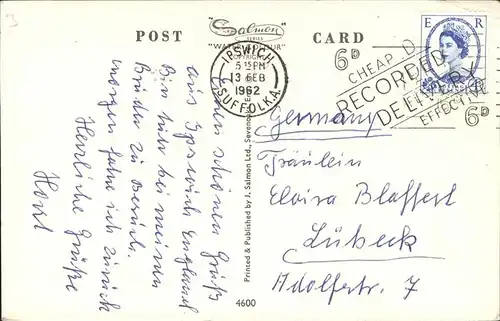 3
POST CARD
Salmon
SERIES
"WATER COLOUR"
COPYRIGHT
IPSWICH
5 15 PM
13 FEB
1962
SUFFOLK. A.
6D
CHEAP
RECORDED
DELIVERY
EFFECTIVE
6D
E R
Einen schönen Gruß
aus Ipswich England
Bin hier bei meinem
Bruder zu Besuch.
morgen fahre ich zurück
Herzliche Grüße
Horst
Printed & Published by J. Salmon Ltd., Sevenoaks, E
4600
Germany
Fräulein
Elvira Blaffert
Lübeck
Adolfstr. 7